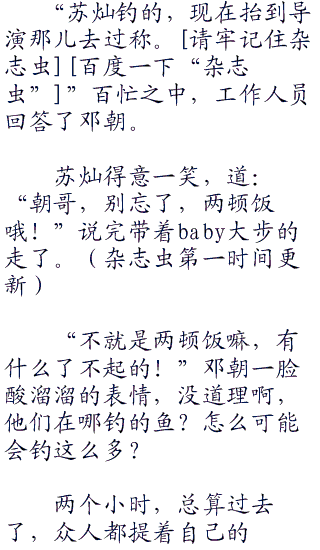 “苏灿钓的，现在抬到导
演那儿去过称。[请牢记住杂
志虫][百度一下“杂志
虫”]”百忙之中，工作人员
回答了邓朝。
苏灿得意一笑，道：
“朝哥，别忘了，两顿饭
哦！”说完带着baby大步的
走了。（杂志虫第一时间更
新）
“不就是两顿饭嘛，有
什么了不起的！”邓朝一脸
酸溜溜的表情，没道理啊，
他们在哪钓的鱼？怎么可能
会钓这么多？
两个小时，总算过去
了，众人都提着自己的